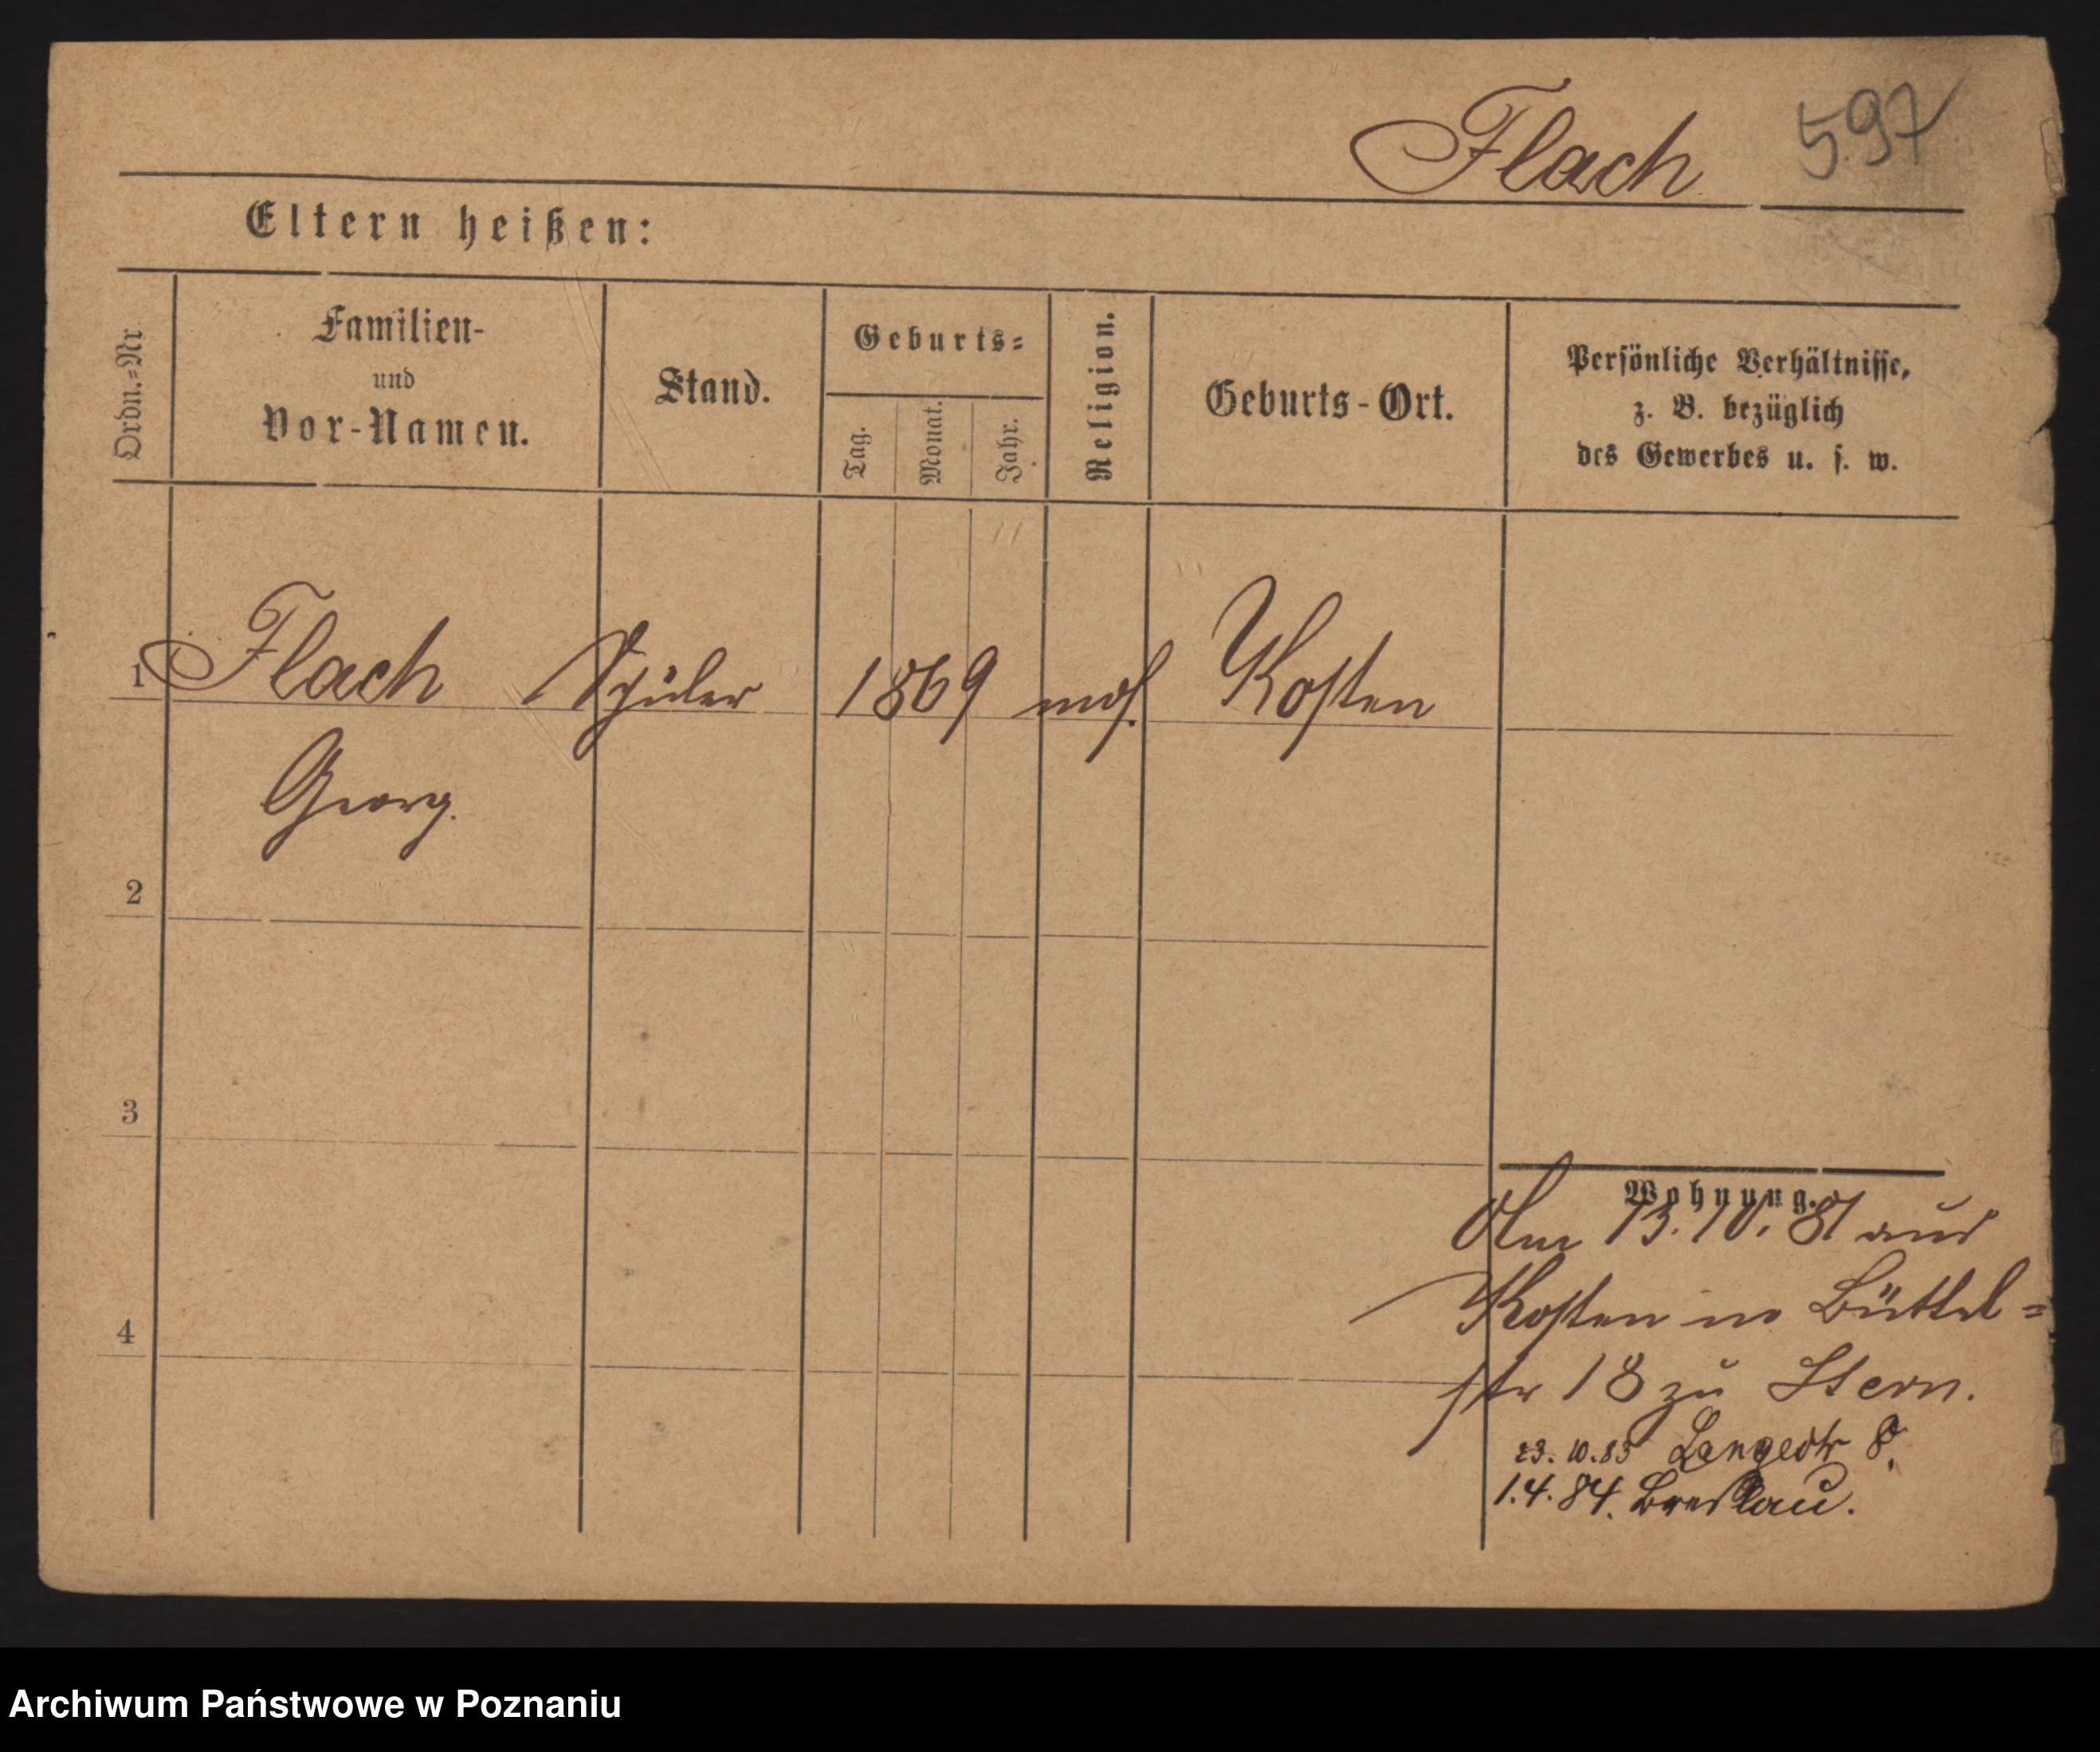 Flach 597
Eltern heißen:
Ordn.=Nr.
Familien-
und
Vor-Namen.
Stand.
Geburts=
Tag.
Monat.
Jahr.
Religion.
Geburts-Ort.
Persönliche Verhältnisse,
z. B. bezüglich
des Gewerbes u. s. w.
1 Flach Schüler 1869 mos. Kosten
Georg.
2
3
Wohnung.
Am 13.10.81 aus
Kosten in Büttel=
4
str 18 zu Stern.
23.10.83 Langestr 8.
1.4.84. Breslau.
Archiwum Państwowe w Poznaniu